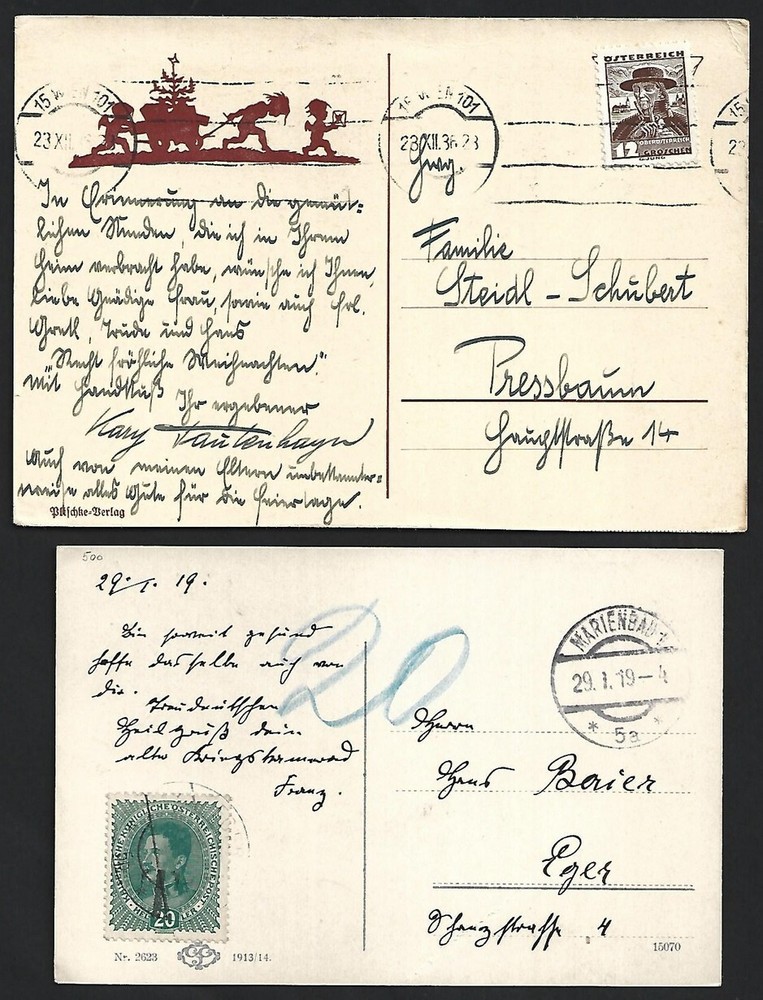 15 WIEN 101
23 XII 36
15 WIEN 101
23 XII. 36 23
ÖSTERREICH
OBERÖSTERREICH
12 GROSCHEN
In Erinnerung an die gemüt-
lichen Stunden, die ich in Ihrem
Heim verbracht habe, wünsche ich Ihnen,
liebe Gnädige Frau, sowie auch Frl.
Gretl, Trude und Hans
"Recht fröhliche Weihnachten."
Mit Handkuß
Ihr ergebener
Karg Tautenhayn
Auch von meinen Eltern unbekannter-
weise alles Gute für die Feiertage.
Pitschke-Verlag
Familie
Steidl - Schubert
Pressbaum
Hauptstraße 14
500
29. I. 19.
Bin soweit gesund
hoffe dasselbe auch von
dir.
Treudeutschen
Heilgruß dein
alter Kriegskamerad
Franz.
20
MARIENBAD 1
29. I. 19 – 4
* 5a *
Herrn
Hans Baier
Eger
Schanzstrasse 4
KAISERLICHE KÖNIGLICHE ÖSTERREICHISCHE POST
20 HELLER
Nr. 2623
1913/14.
15070